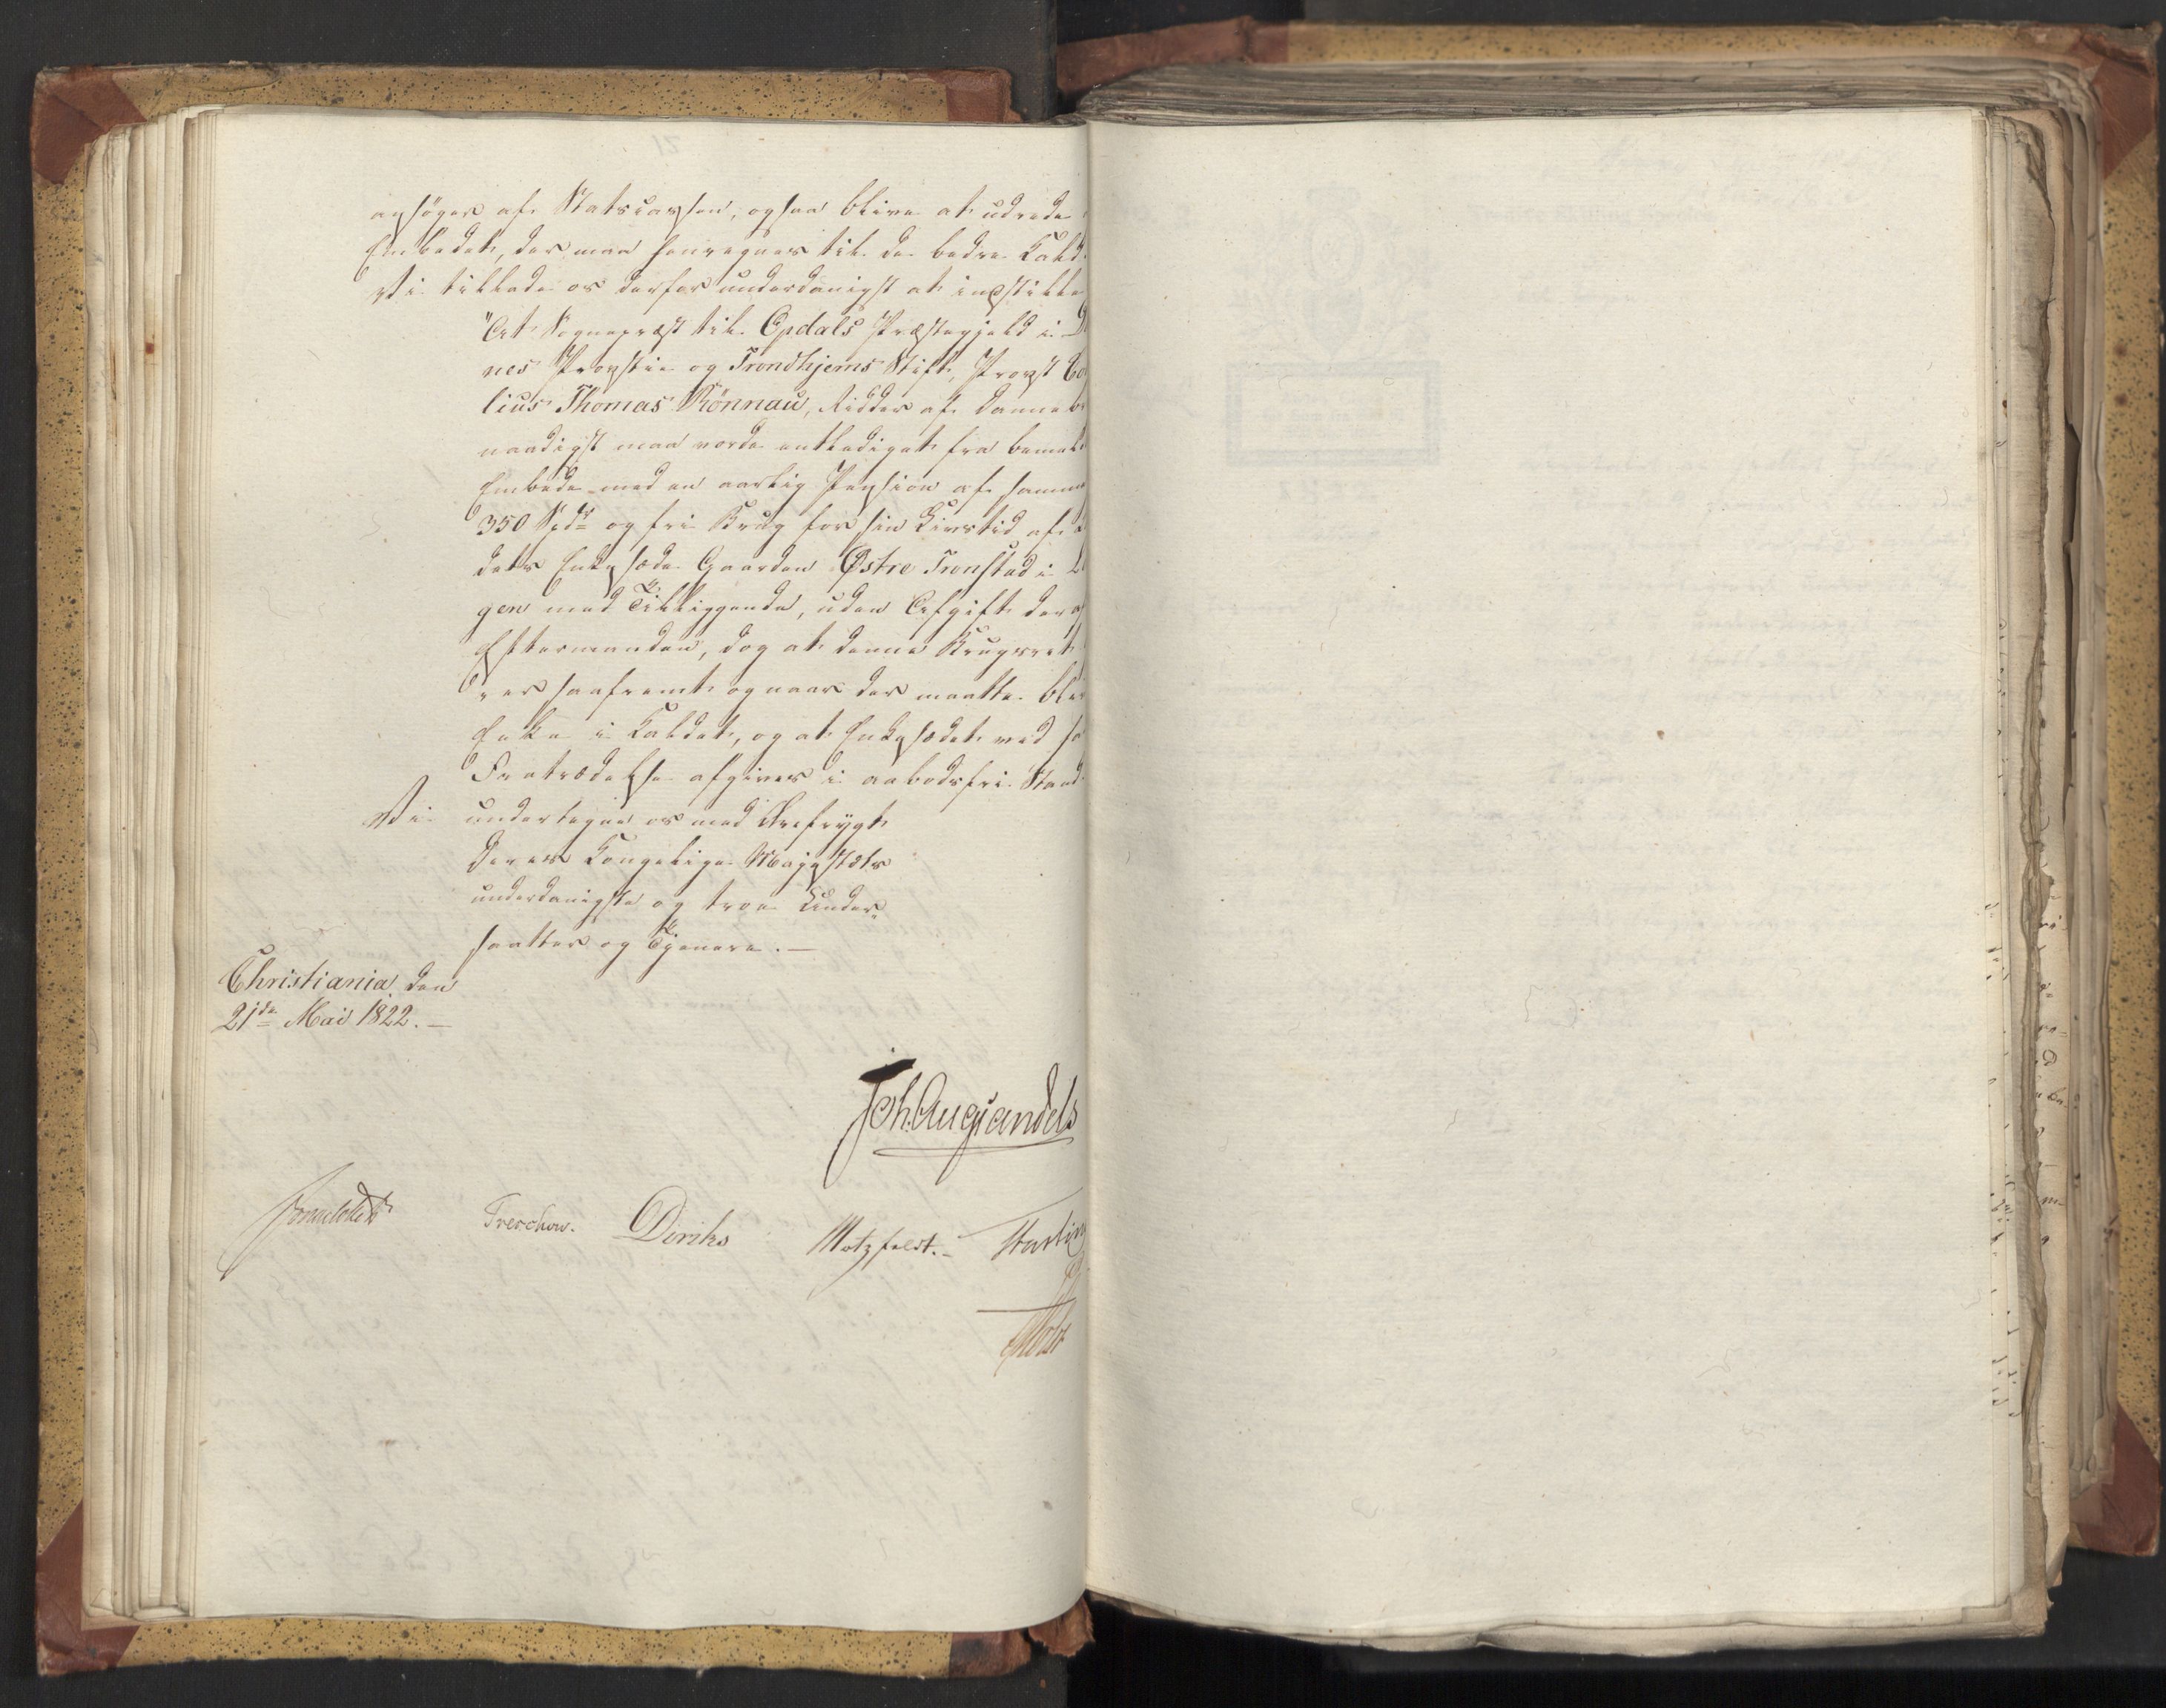 ansöges af Statscassen, ogsaa blive at udrede
Embedet, der maa henregnes til de bedre Kald.
Vi tillade os derfor underdanigst at indstille
"At Sognepræst til Opdals Præstegjeld i D
nes Provstie og Trondhjems Stift, Provst Co
lius Thomas Rönnau, Ridder af Dannebr
naadigst maa vorde entlediget fra bemel
Embede med en aarlig Pension af samme
350 Spd og fri Brug for sin Livstid af
dets Enkesæde Gaarden Østre Tronstad i L
gen med Tilliggende, uden Afgift deraf
Eftermanden, dog at denne Brugsret
er saafremt og naar der maatte blive
Enke i Kaldet, og at Enkesædet ved
Fratrædelse afgives i aabodsfri Stand
Vi undertegne os med Ærefrygt
Deres Kongelige Majestæts
underdanigste og troe Under-
saatter og Tjenere. —
Christiania den
21de Mai 1822. —
Joh: Aug: Sandels
Sommerhielm Treschow. Diriks Motzfeldt. -
Holst